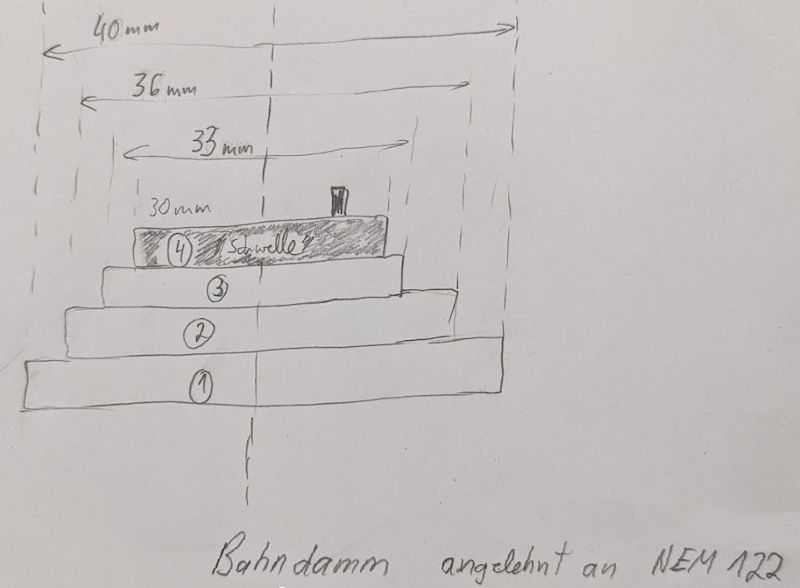 40mm
36mm
33mm
30mm
④ "Schwelle"
③
②
①
Bahndamm angelehnt an NEM 122